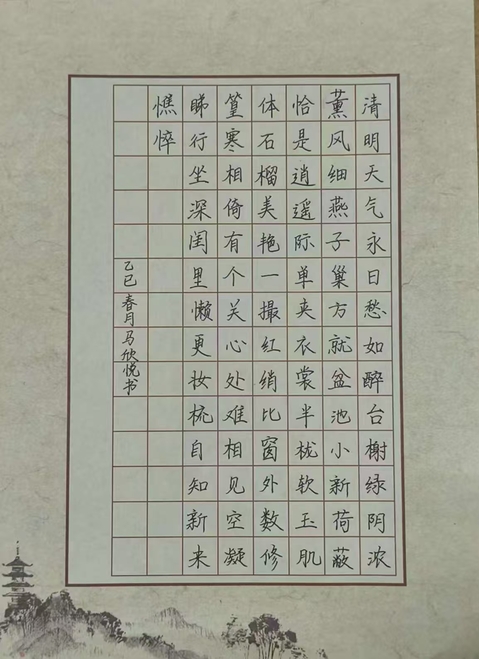 清明天气永日愁如醉台榭绿阴浓
薰风细燕子巢方就盆池小新荷蔽
恰是逍遥际单夹衣裳半栊软玉肌
体石榴美艳一撮红绡比窗外数修
篁寒相倚有个关心处难相见空凝
睇行坐深闺里懒更妆梳自知新来
憔悴
乙巳春月马欣悦书